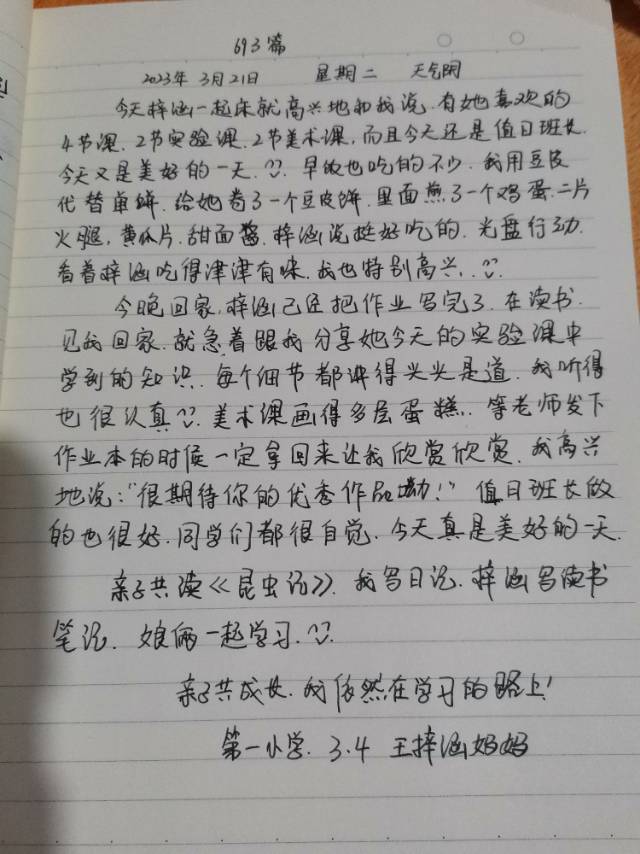 693篇
2023年 3月21日 星期二 天气阴
今天梓涵一起床就高兴地和我说.有她喜欢的
4节课.2节实验课.2节美术课,而且今天还是值日班长.
今天又是美好的一天. 早饭也吃的不少.我用豆皮
代替单饼.给她卷了一个豆皮饼.里面煎了一个鸡蛋.二片
火腿,黄瓜片.甜面酱.梓涵说挺好吃的.光盘行动.
看着梓涵吃得津津有味.我也特别高兴..
今晚回家,梓涵已经把作业写完了.在读书.
见我回家.就急着跟我分享她今天的实验课中
学到的知识.每个细节都讲得头头是道.我听得
也很认真 美术课画得多层蛋糕..等老师发下
作业本的时候一定拿回来让我欣赏欣赏.我高兴
地说:"很期待你的优秀作品呦!" 值日班长做
的也很好.同学们都很自觉.今天真是美好的一天.
亲子共读《昆虫记》.我写日记.梓涵写读书
笔记. 娘俩一起学习.
亲子共成长.我依然在学习的路上!
第一小学. 3.4 王梓涵妈妈